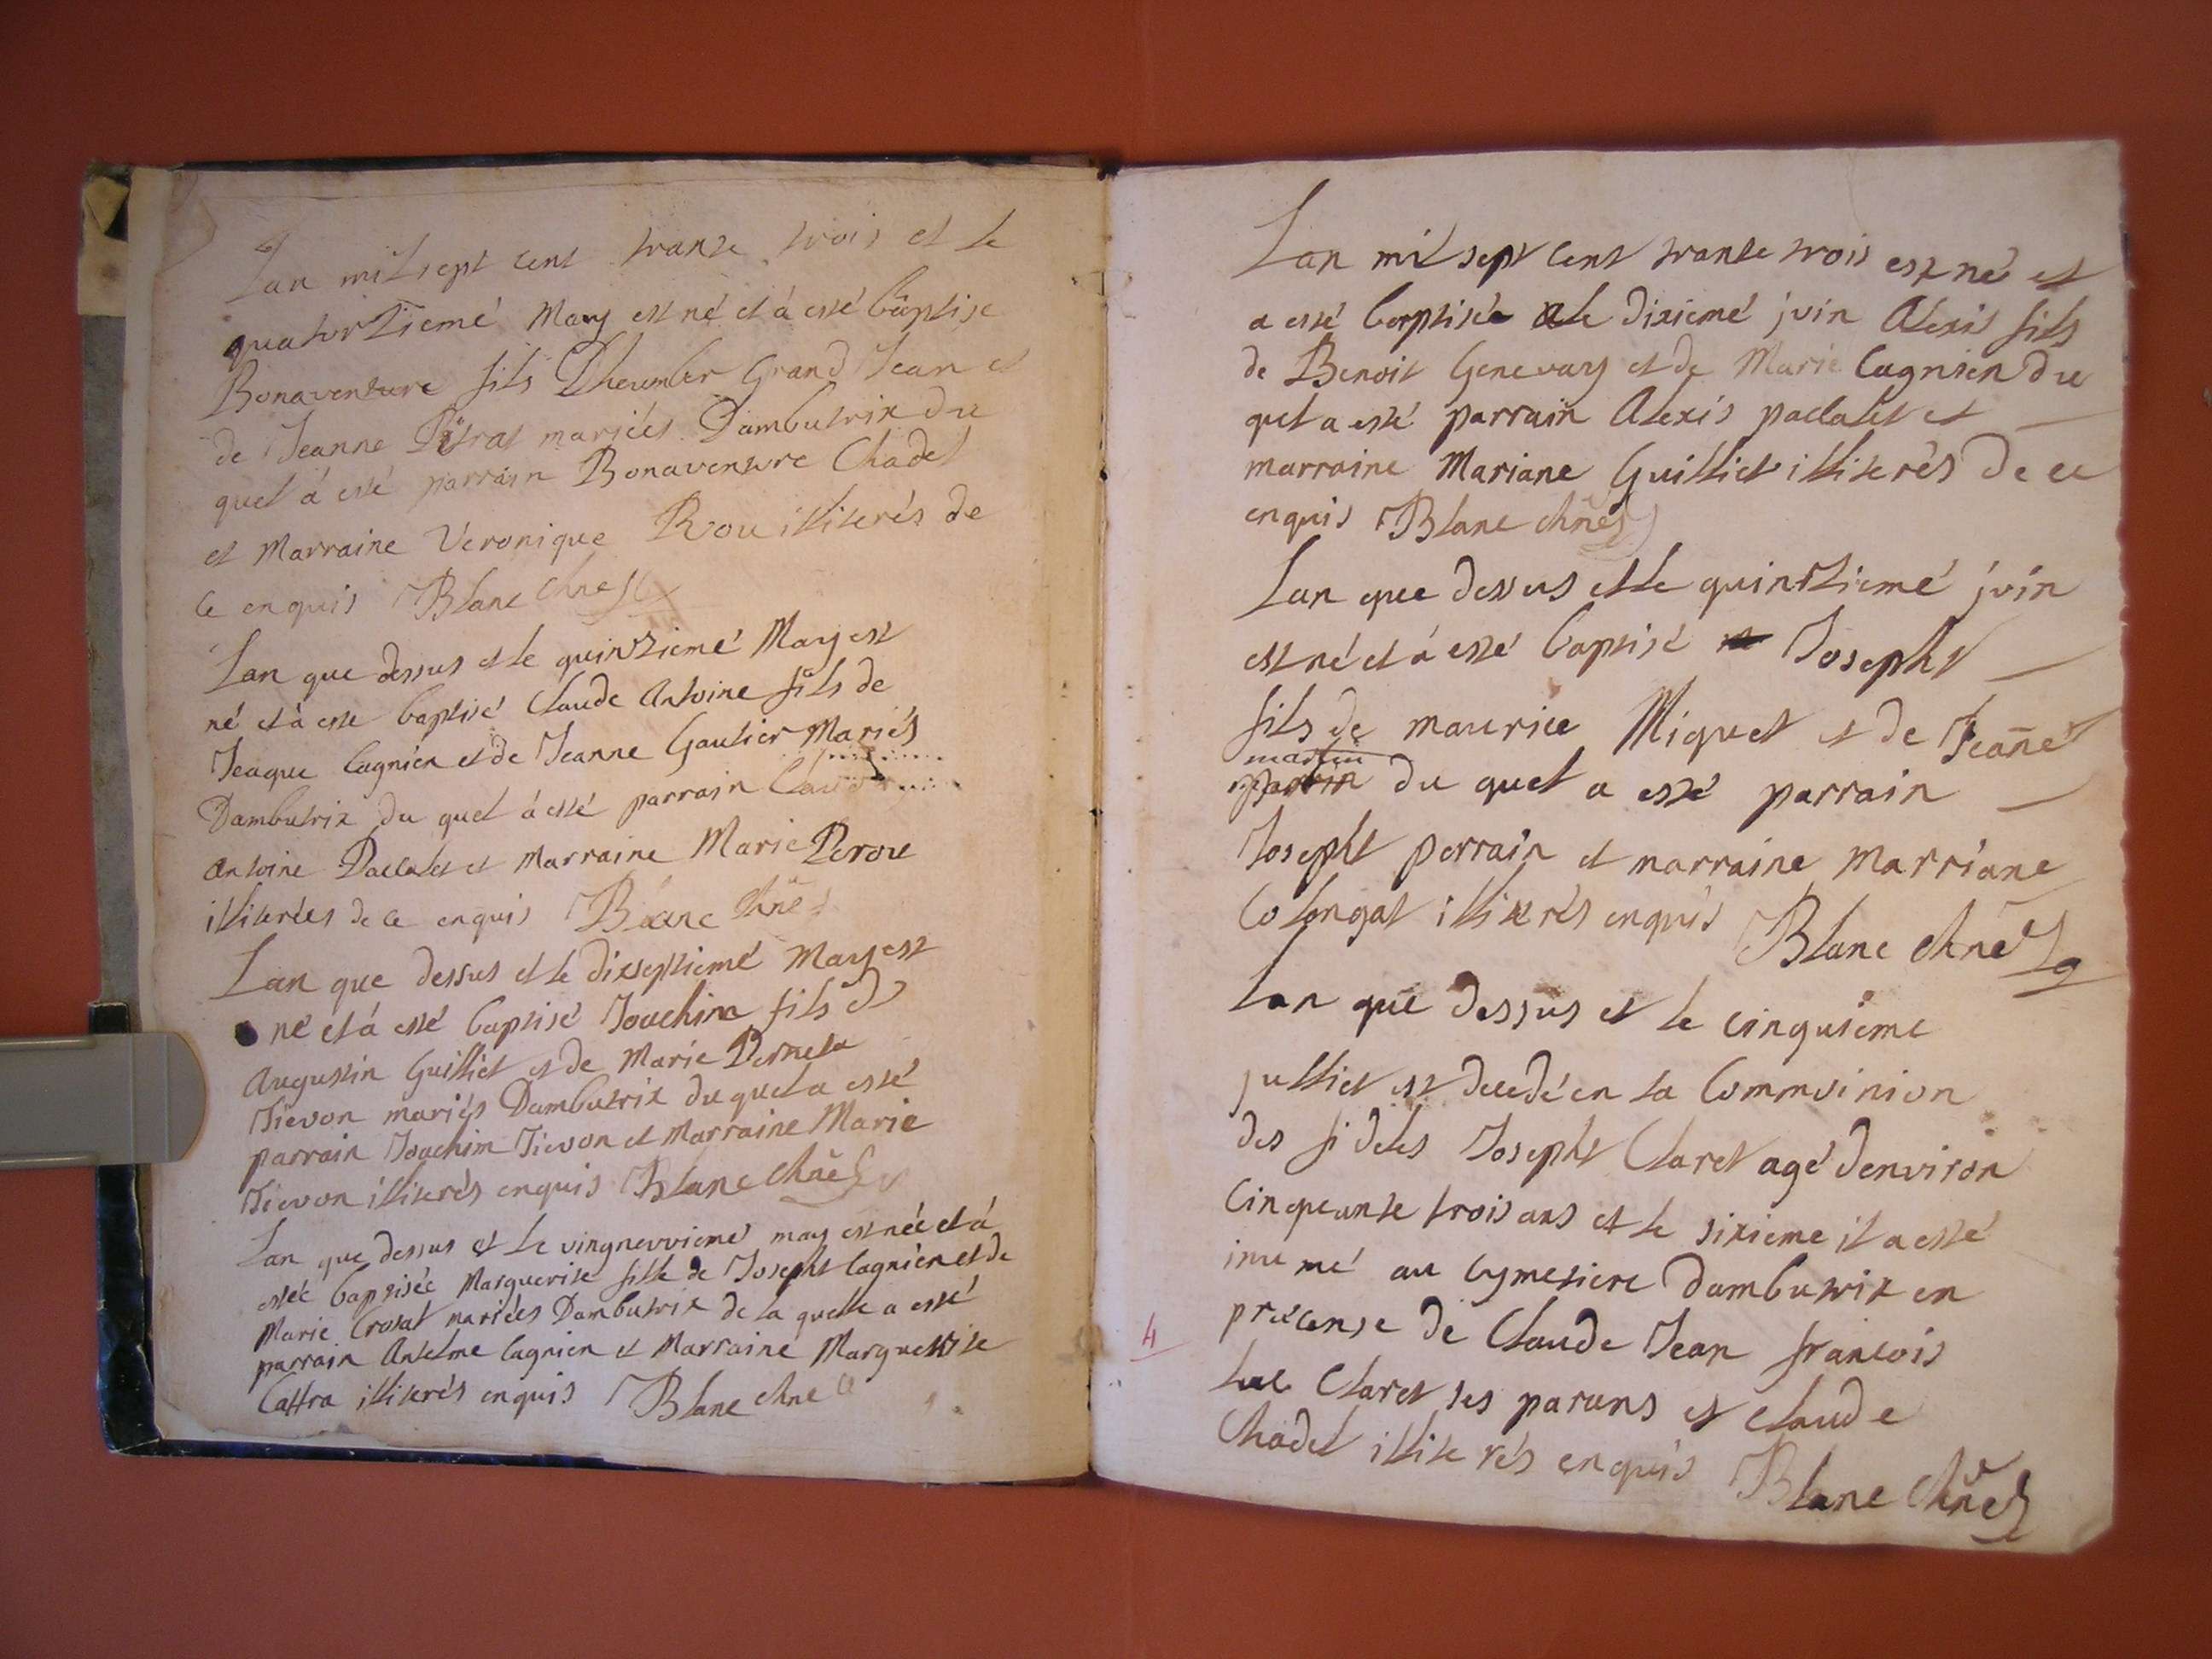 Lan mil sept cent trante trois et le
quatorzieme May est né et à esté bâptise
Bonaventure fils Dheumber Grand Jean et
de Jeanne mariéés Dambutrix du
quel á esté parrain Bonaventure Chadel
et Marraine Veronique Rou illiterés de
ce enquis Blanc chne
Lan que dessus et le quintzieme May est
né et à este baptisé Claude Antoine fils de
Jeaque Cagnien et de Jeanne Gautier Mariés
Dambutrix du quel á esté parrain Claude
antoine Paclalet et Marraine Marie Perou
illiterées de ce enquis Blanc chñe
Lan que dessus et le dixseptiemé May est
né et á esté baptisé Joachim fils de
Augustin Guilliet et de Marie Perneta
Tievon mariés Dambutrix du quel a esté
parrain Joachim Tievon et Marraine Marie
Tievon illiterés enquis Blanc chñe
Lan que dessus et le vingneuvieme may est néé et á
estéé baptiséé Marguerite fille de Josepht Cagnien et de
Marie Crosat mariéés Dambutrix de la quelle a esté
parrain Antelme Cagnien et Marraine Marguerite
Cattra illiterés enquis Blanc chne
Lan mil sept cent trante trois est né et
a esté baptisée le dixiemé juin Alexis fils
de Benoit Genevay et de Marie Cagnien du
quel a esté parrain Alexis paclalet et
marraine Mariane Guilliet illiterés de ce
enquis Blanc chñe
Lan que dessus et le quintziemé juin
est né et á esté baptisé Josepht
fils de maurice Miquet et de Jeañe
martin
du quel a esté parrain
Josepht perrain et marraine Marriane
Colongat illiterés enquis Blanc chñe
Lan que dessus et le cinquieme
julliet est decedé en la Commvinion
des fideles Josepht Claret agé denviron
Cinqeante trois ans et le sixieme il a esté
inumé au Cymetiere Dambutrix en
4
précense de Claude Jean francois
Luc Claret ses parans et Claude
Chadel illiterés enquis Blanc chñe